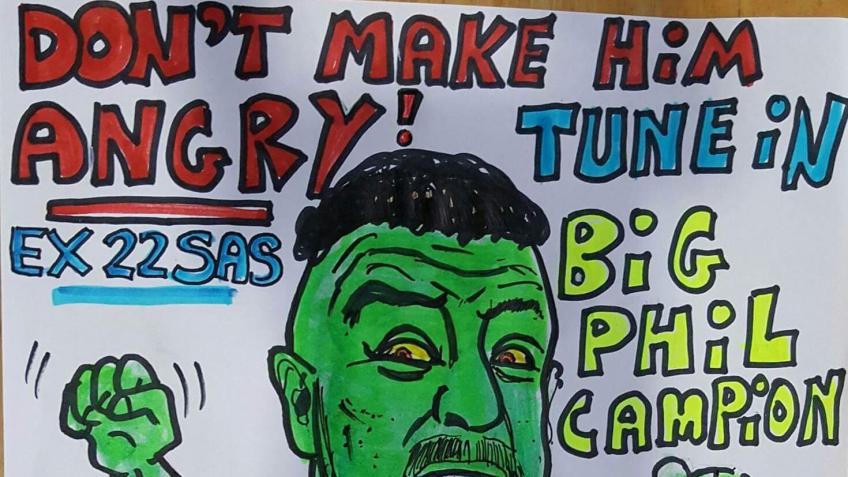 DON'T MAKE HiM
ANGRY!
TUNE iN
EX 22 SAS
BiG
PHiL
CAMPiON